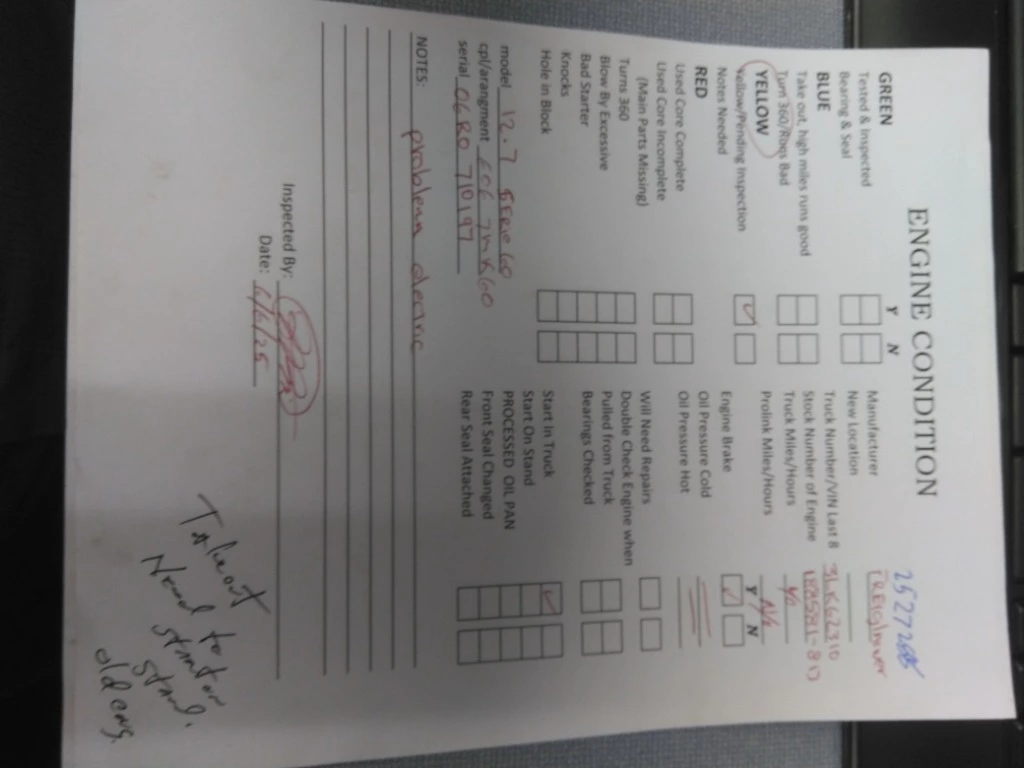 ENGINE CONDITION
Y N
GREEN
Tested & Inspected
Bearing & Seal
BLUE
Take out, high miles runs good
Turn 360/Rods Bad
YELLOW
Yellow/Pending Inspection
Notes Needed
RED
Used Core Complete
Used Core Incomplete
(Main Parts Missing)
Turns 360
Blow By Excessive
Bad Starter
Knocks
Hole in Block
model 12.7
cpl/arangment
serial 06R0 710197
Manufacturer
New Location
Truck Number/VIN Last 8
Stock Number of Engine
Truck Miles/Hours
Prolink Miles/Hours N/A
Y N
Engine Brake
Oil Pressure Cold
Oil Pressure Hot
Will Need Repairs
Double Check Engine when
Pulled from Truck
Bearings Checked
Start In Truck
Start On Stand
PROCESSED OIL PAN
Front Seal Changed
Rear Seal Attached
NOTES: problem
Inspected By:
Date:
Takeout
Need to
start on
stand.
old eng.